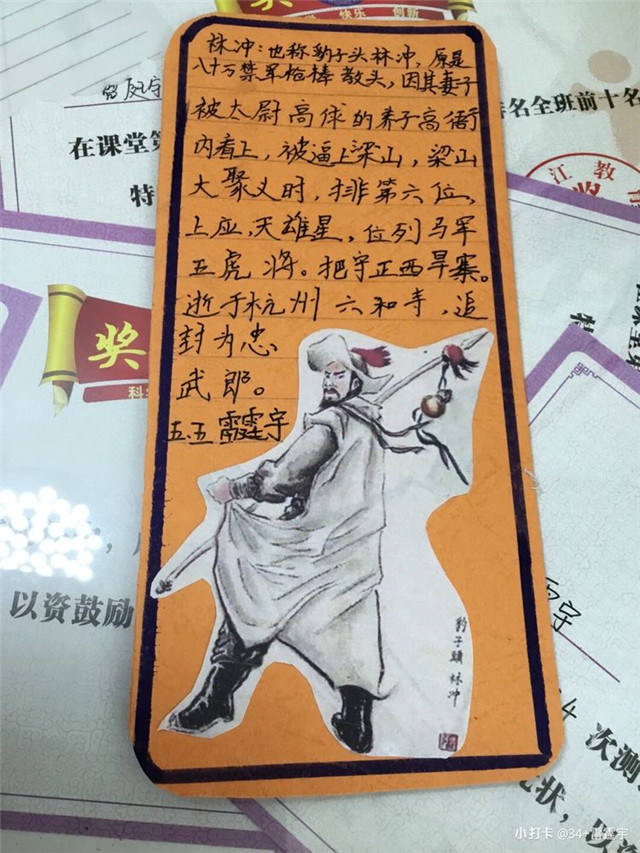 快乐 创新
奖
林冲：也称豹子头林冲，原是
八十万禁军枪棒教头，因其妻子
被太尉高俅的养子高衙
内看上，被逼上梁山，梁山
大聚义时，排第六位，
上应，天雄星，位列马军
五虎将。把守正西旱寨。
逝于杭州六和寺，追
封为忠
武郎。
五.五 雷霆宇
豹子头林冲
在课堂第
特
名全班前十名
江教
奖
科
以资鼓励
次测
状，以资
小打卡 @34+雷霆宇